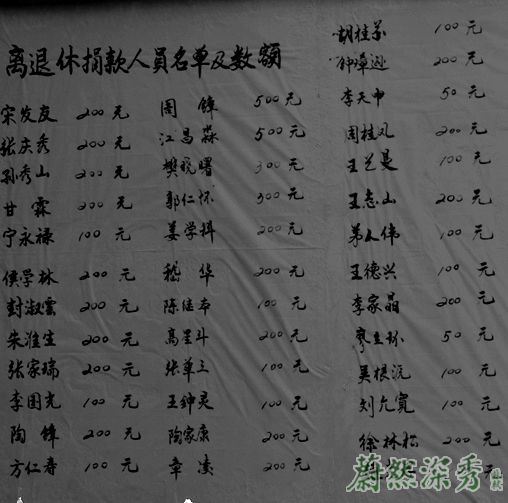 离退休捐款人员名单及数额
宋发友 200元
张庆秀 200元
孙秀山 200元
甘霖 200元
宁永禄 100元
侯学林 200元
封淑云 200元
朱淮生 200元
张家瑞 200元
李国光 100元
陶锋 200元
方仁寿 100元
周锋 500元
江昌淼 500元
樊晓曙 300元
郭仁怀 300元
姜学科 200元
嵇华 200元
陈继本 100元
高星斗 200元
张草三 100元
王钟灵 100元
陶家康 200元
章凌 200元
胡桂英 100元
钟璋逊 200元
李天申 50元
周桂凤 200元
王艺 100元
王志山 200元
人伟 100元
王德兴 100元
李家晶 200元
廖玉环 50元
吴根沅 100元
刘允宽 100元
徐林松 200元
元
蔚然深秀